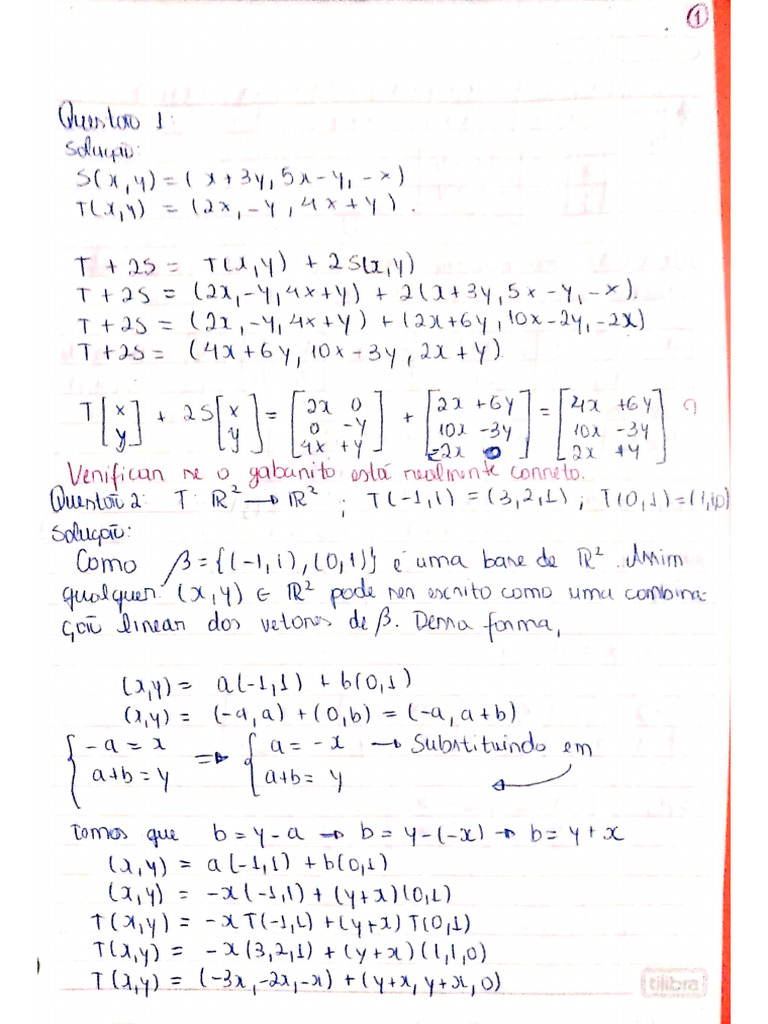 1
Questão 1:
Solução:
S(x,y) = (x+3y, 5x-y, -x)
T(x,y) = (2x, -y, 4x+y).
T + 2S = T(x,y) + 2S(x,y)
T + 2S = (2x, -y, 4x+y) + 2(x+3y, 5x-y, -x).
T + 2S = (2x, -y, 4x+y) + (2x+6y, 10x-2y, -2x)
T + 2S = (4x+6y, 10x-3y, 2x+y).
T[x y] + 2S[x y] = [2x 0 0 -y 4x +y] + [2x +6y 10x -3y -2x 0] = [4x +6y 10x -3y 2x +y] ?
Verificar se o gabarito está realmente correto.
Questão 2: T: ℝ² → ℝ² ; T(-1,1) = (3,2,1) ; T(0,1) = (1,1,0)
Solução:
Como β = {(-1,1), (0,1)} é uma base de ℝ². Assim
qualquer (x,y) ∈ ℝ² pode ser escrito como uma combina-
ção linear dos vetores de β. Dessa forma,
(x,y) = a(-1,1) + b(0,1)
(x,y) = (-a,a) + (0,b) = (-a, a+b)
{ -a = x ⇒ { a = -x → Substituindo em
a+b = y a+b = y ←
temos que b = y-a → b = y-(-x) → b = y+x
(x,y) = a(-1,1) + b(0,1)
(x,y) = -x(-1,1) + (y+x)(0,1)
T(x,y) = -xT(-1,1) + (y+x)T(0,1)
T(x,y) = -x(3,2,1) + (y+x)(1,1,0)
T(x,y) = (-3x, -2x, -x) + (y+x, y+x, 0)
tilibra